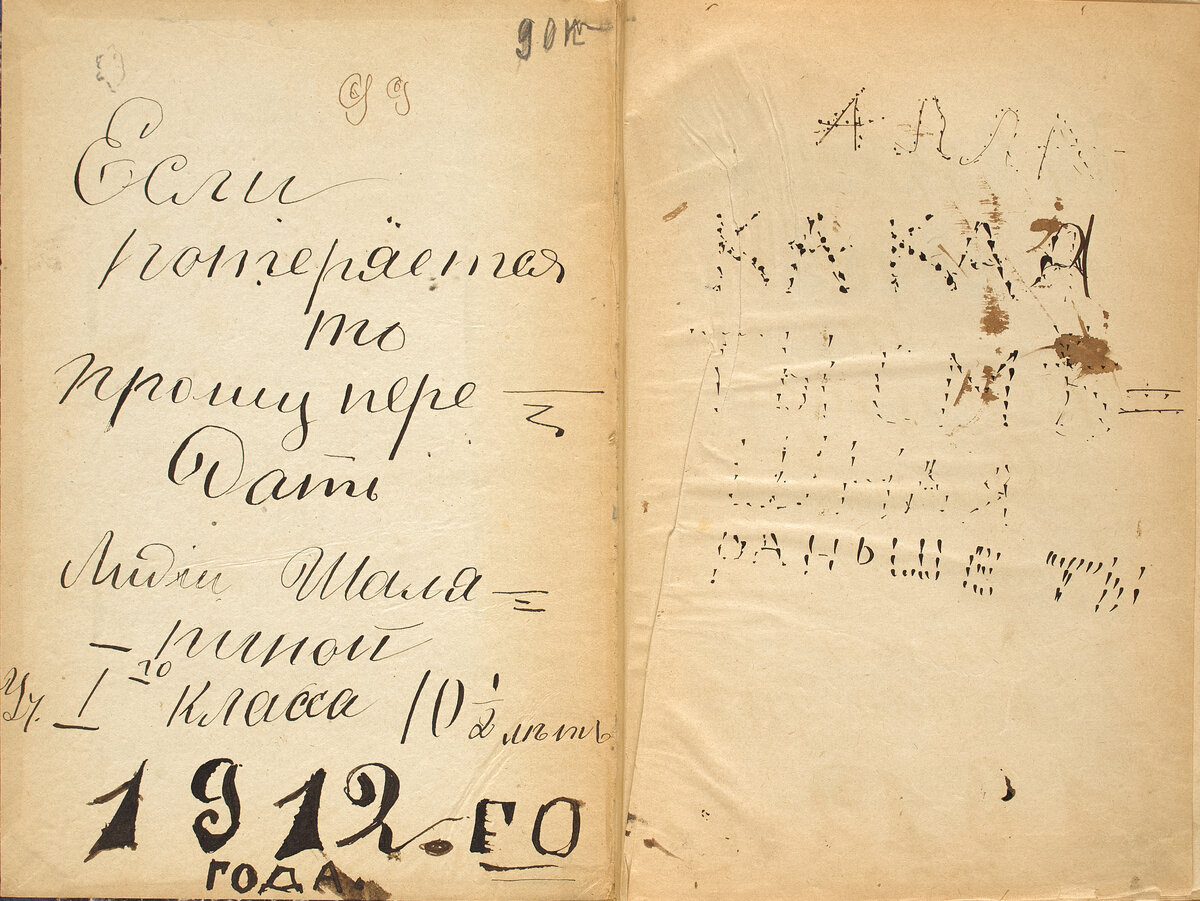 Если
потеряется
то
прошу пере=
дать
Лидiи Шаля=
=пиной
Уч. I го класса 10 ½ лѣтъ
1912.ГО
ГОДА.
АЛЛА
КАКАЯ
ТЫ
РАНЬШЕ ТЫ